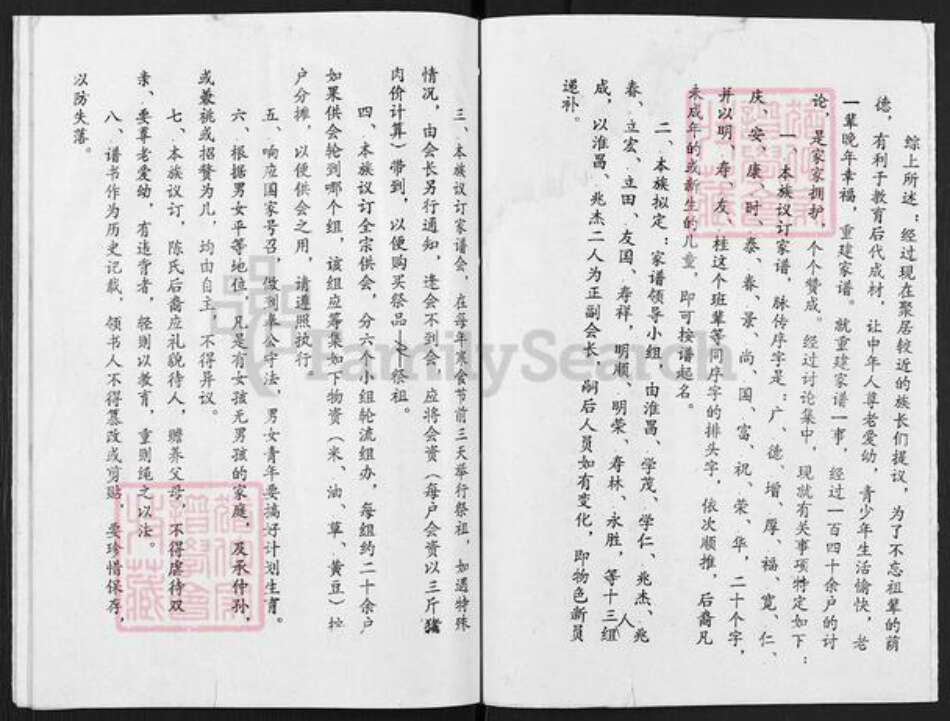 综上所述：经过现在聚居较近的族长们提议，为了不忘祖辈的荫
德，有利于教育后代成材，让中年人尊老爱幼，青少年生活愉快，老
一辈晚年幸福，重建家谱。就重建家谱一事，经过一百四十余户的讨
论，是家家拥护，个个赞成。经过讨论集中，现就有关事项特定如下：
一、本族议订家谱，脉传序字是：广、德、增、厚、福、宽、仁、
庆、安、康、时、泰、春、景、尚、国、富、祝、荣、华，二十个字，
并以明、寿、友、桂这个班辈等同序字的排头字，依次顺推，后裔凡
未成年的或新生的儿童，即可按谱起名。
二、本族拟定：家谱领导小组，由淮昌、学茂、学仁、兆杰、兆
春、立宏、立田、友国、寿祥，明顺、明荣、寿林、永胜，等十三人组
成，以淮昌、兆杰二人为正副会长，嗣后人员如有变化，即物色新员
递补。
三、本族议订家谱会，在每年寒食节前三天举行祭祖，如遇特殊
情况，由会长另行通知，逢会不到会，应将会资（每户会资以三斤猪
肉价计算）带到，以便购买祭品祭祖。
四、本族议订全宗供会，分六个小组轮流组办，每组约二十余户
如果供会轮到哪个组，该组应筹集如下物资（米、油、草、黄豆）按
户分摊，以便供会之用，请遵照执行
五、响应国家号召，做到奉公守法，男女青年要搞好计划生育。
六、根据男女平等地位，凡是有女孩无男孩的家庭，及承仲孙，
或兼祧或招赘为儿，均由自主，不得异议。
七、本族议订，陈氏后裔应礼貌待人，赡养父母，不得虐待双
亲、要尊老爱幼，有违背者，轻则以教育，重则绳之以法。
八、谱书作为历史记载，领书人不得篡改或剪贴，要珍惜保存，
以防失落。
FamilySearch